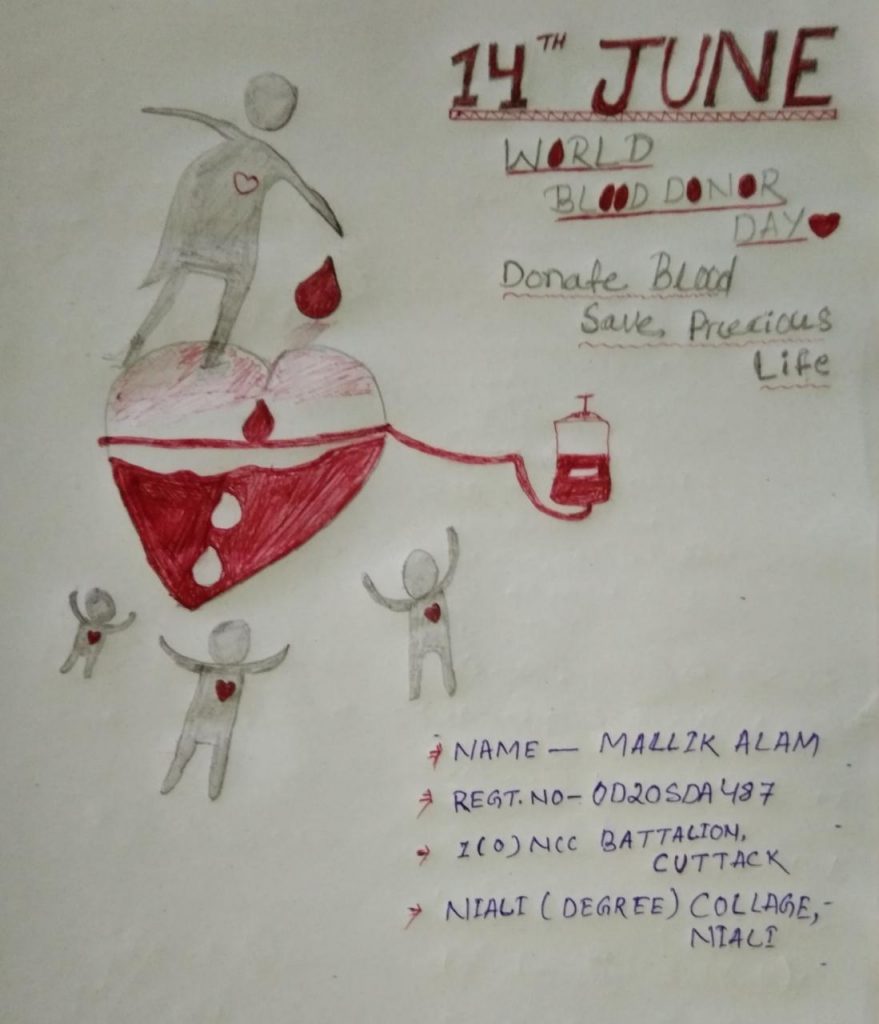 14TH JUNE
WORLD
BLOOD DONOR
DAY
Donate Blood
Save Precious
Life
NAME — MALLIK ALAM
REGT. NO - OD20SDA487
1(O) NCC BATTALION,
CUTTACK
NIALI (DEGREE) COLLAGE,-
NIALI